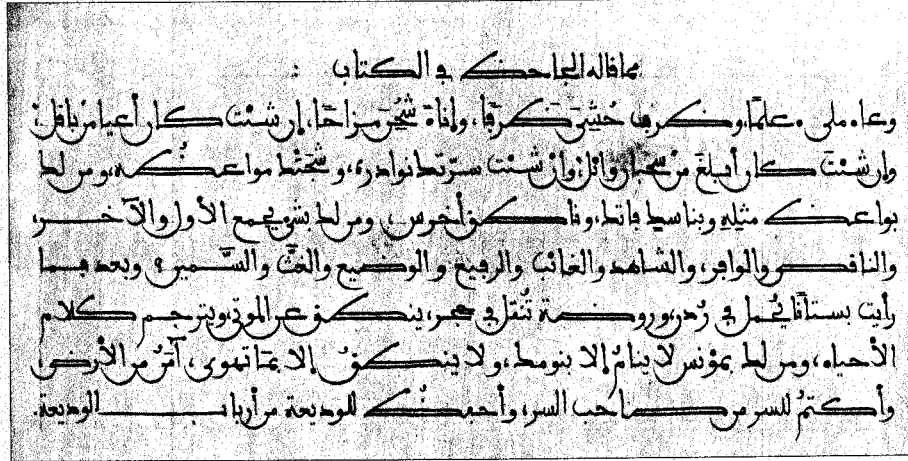 مما قاله الجاحظ في الكتاب :
وعاء ملىء علما، وظرف حُشِيَ ظَرفا، وإناء شُحِنَ مزاحا، إن شئت كان أعيا من باقل،
وإن شئت كان أبلغ من سحبان وائل، وإن شئت سرّتك نوادره، وشجتك مواعظه، ومن لك
بواعظ مثله وبناسك فاتك، وناطق أخرس، ومن لك بشيء يجمع الأول والآخر،
والناقص والوافر، والشاهد والغائب والرفيع والوضيع والغث والسَّمين؟ وبعد فما
رأيت بستانا يُحمل في رُدن، وروضة تُنقل في حجر، ينطق عن الموتى ويترجم كلام
الأحياء، ومن لك بمؤنس لا ينامُ إلا بنومك، ولا ينطقُ إلا بما تهوى، آمَنُ من الأرض،
وأكتمُ للسر من صاحب السر، وأحفظُ للوديعة من أرباب الوديعة.